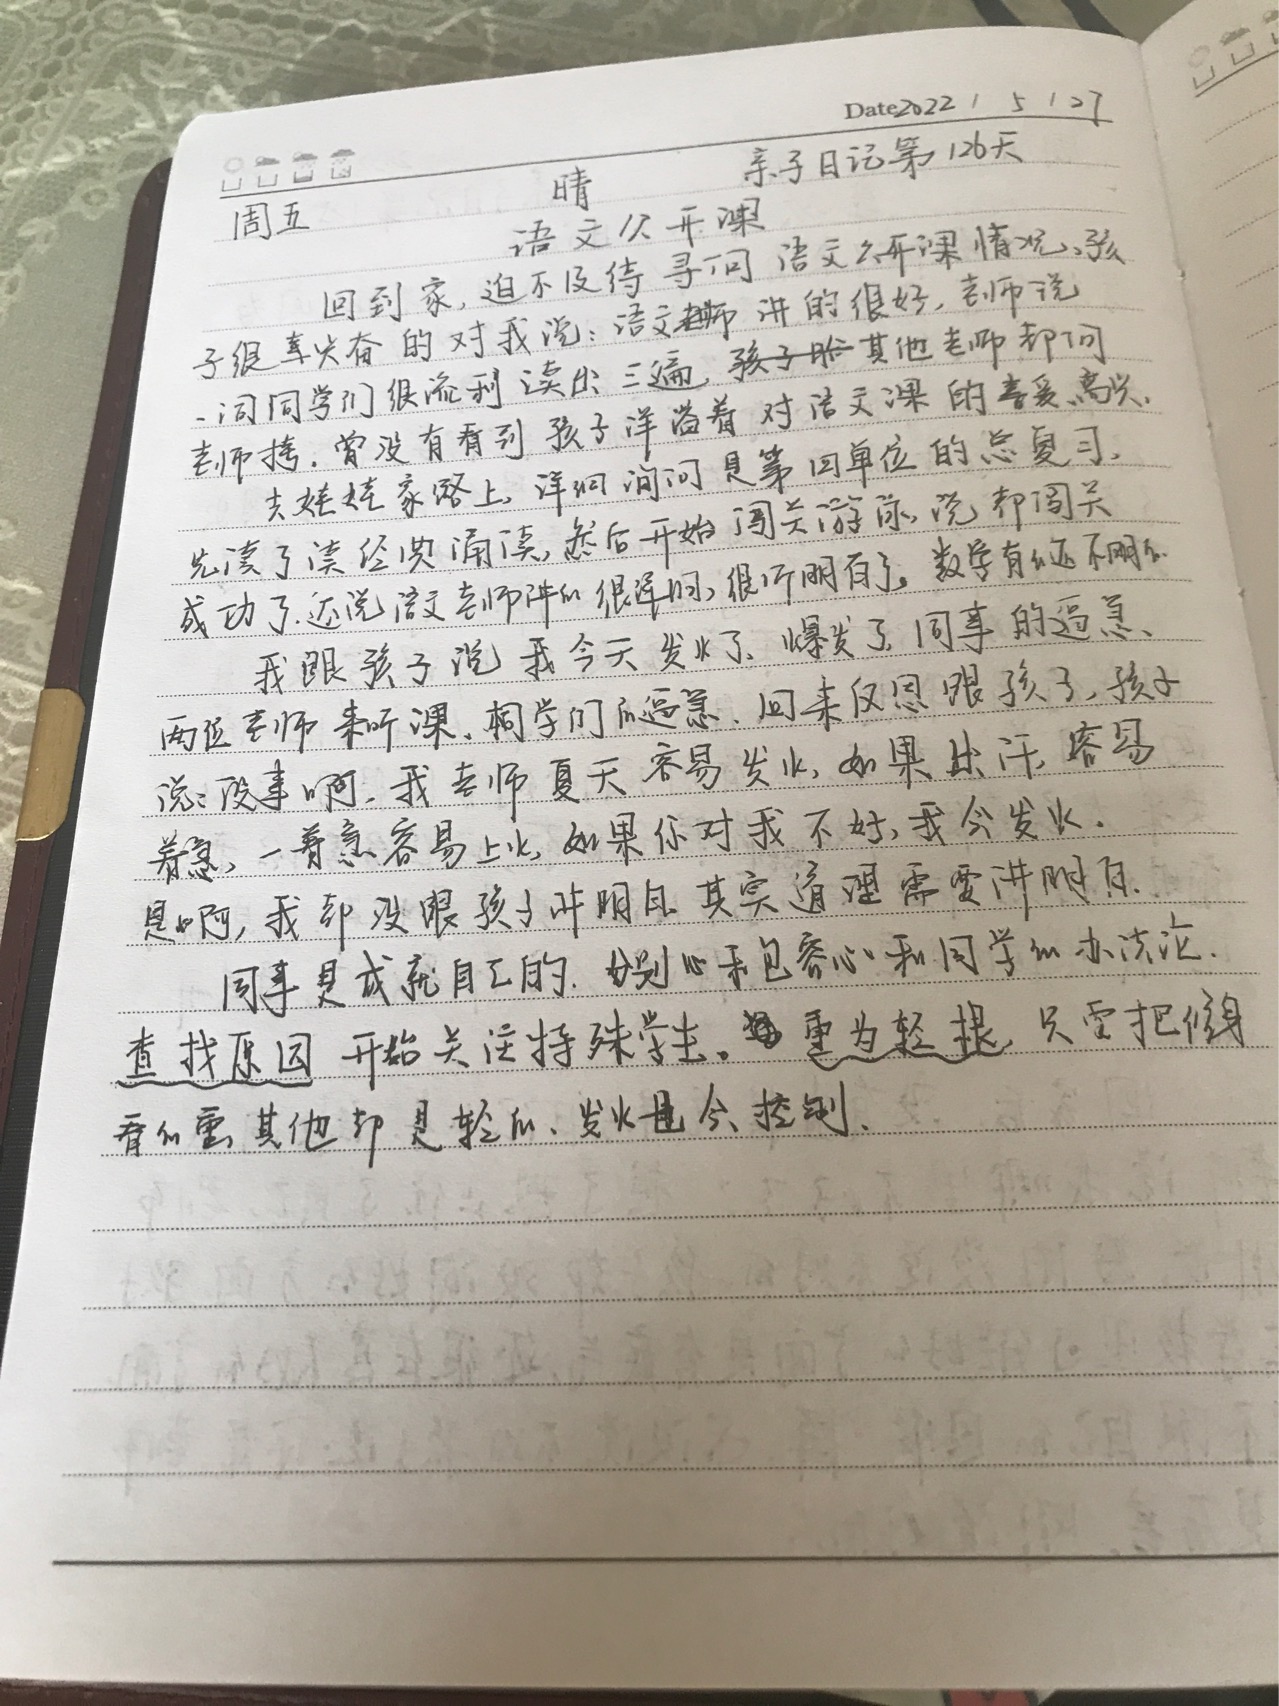 Date 2022 / 5 / 27
周五 晴 亲子日记第126天
语文公开课
回到家,迫不及待寻问语文公开课情况,孩
子很兴奋的对我说:语文老师讲的很好,老师说
一词同学们很流利读出三遍,其他老师都问
老师拷.曾没有看到孩子洋溢着对语文课的喜爱.高兴.
去娃娃家路上,详细询问是第四单位的总复习,
先读了读经典诵读,然后开始闯关游泳,说都闯关
成功了.还说语文老师讲的很详细,很听明白了。数学有的还不明白
我跟孩子说我今天发火了、爆发了同事的逼急、
两位老师来听课、同学们的逼急.回来反思跟孩子,孩子
说:没事啊.我老师夏天容易发火,如果出汗,容易
着急,一着急容易上火,如果你对我不好,我会发火.
是啊,我却没跟孩子讲明白 其实道理需要讲明白.
同事是成就自己的.分别心和包容心和同学的办法论.
查找原因 开始关注特殊学生。重为轻根,只要把修身
看的重,其他都是轻的、发火也会控制.